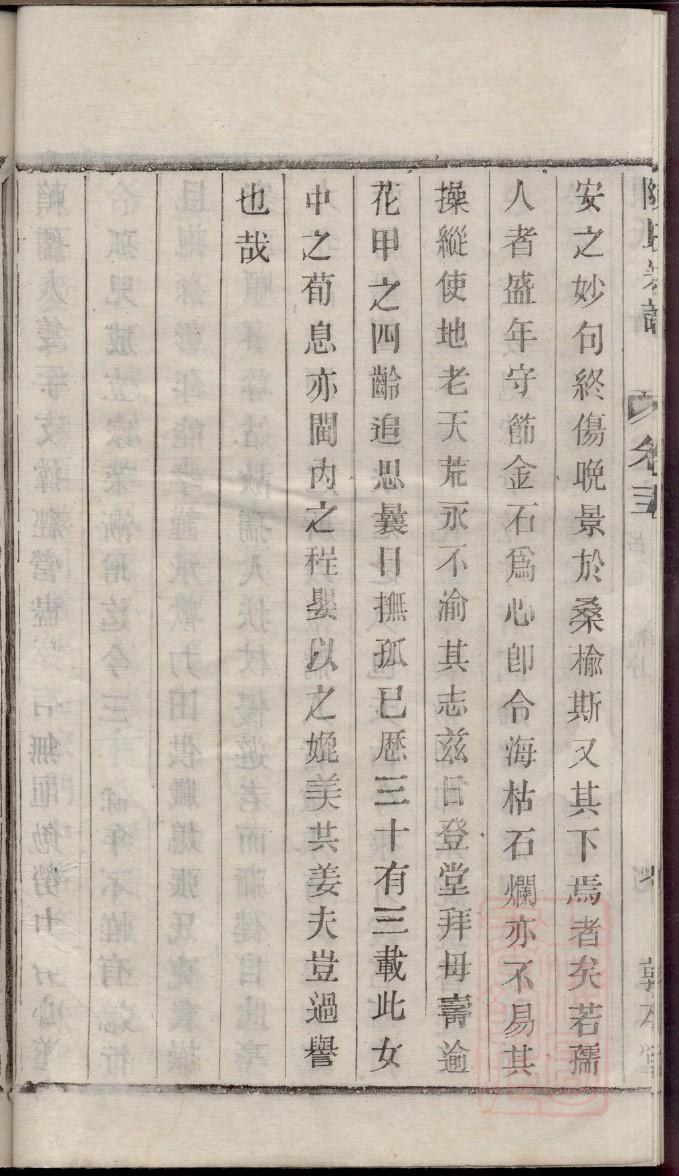 陳氏宗譜 卷三
安之妙句終傷晚景於桑榆斯又其下焉者矣若孺
人者盛年守節金石爲心卽令海枯石爛亦不易其
操縱使地老天荒永不渝其志兹日登堂拜母壽逾
花甲之四齡追思曩日撫孤已歷三十有三載此女
中之荀息亦閫內之程嬰以之媲美共姜夫豈過譽
也哉